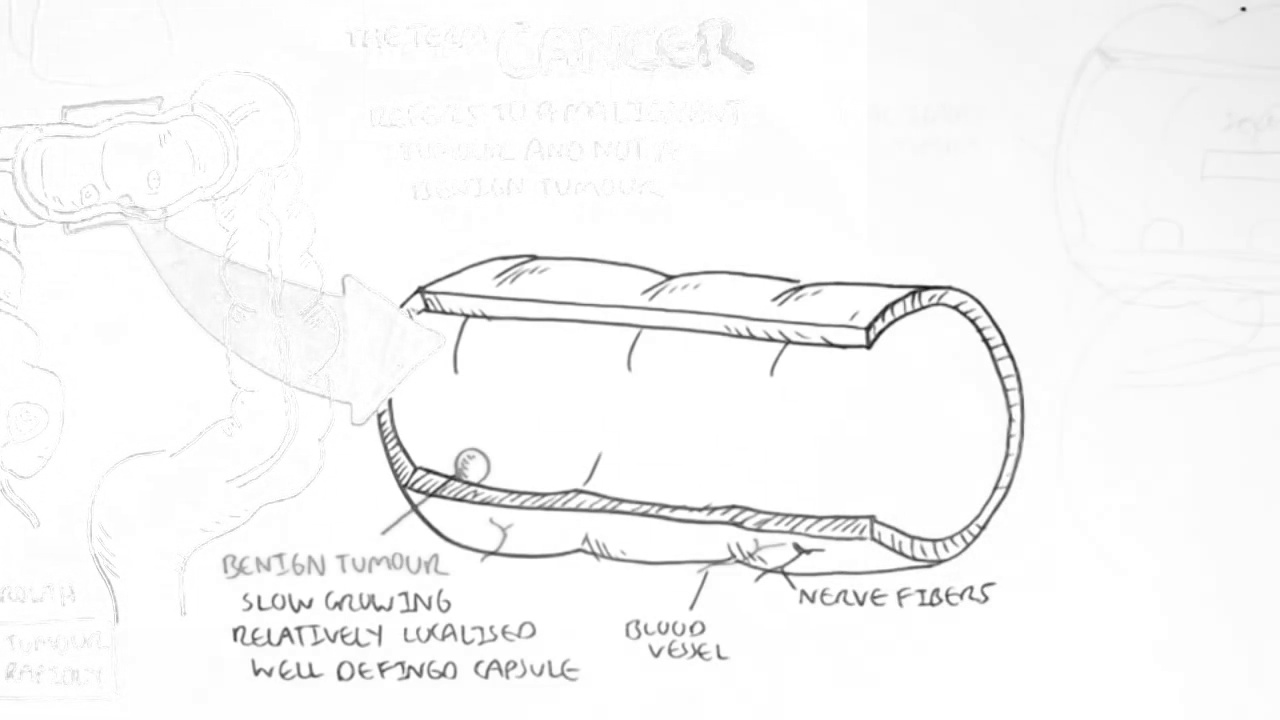 THE TERM CANCER
REFERS TO A MALIGNENT
TUMOUR AND NOT A
BENIGN TUMOUR
BENIGN TUMOUR
SLOW GROWING
RELATIVELY LOCALISED
WELL DEFINGD CAPSULE
BLOOD
VESSEL
NERVE FIBERS
TUMOUR
RAPIDLY